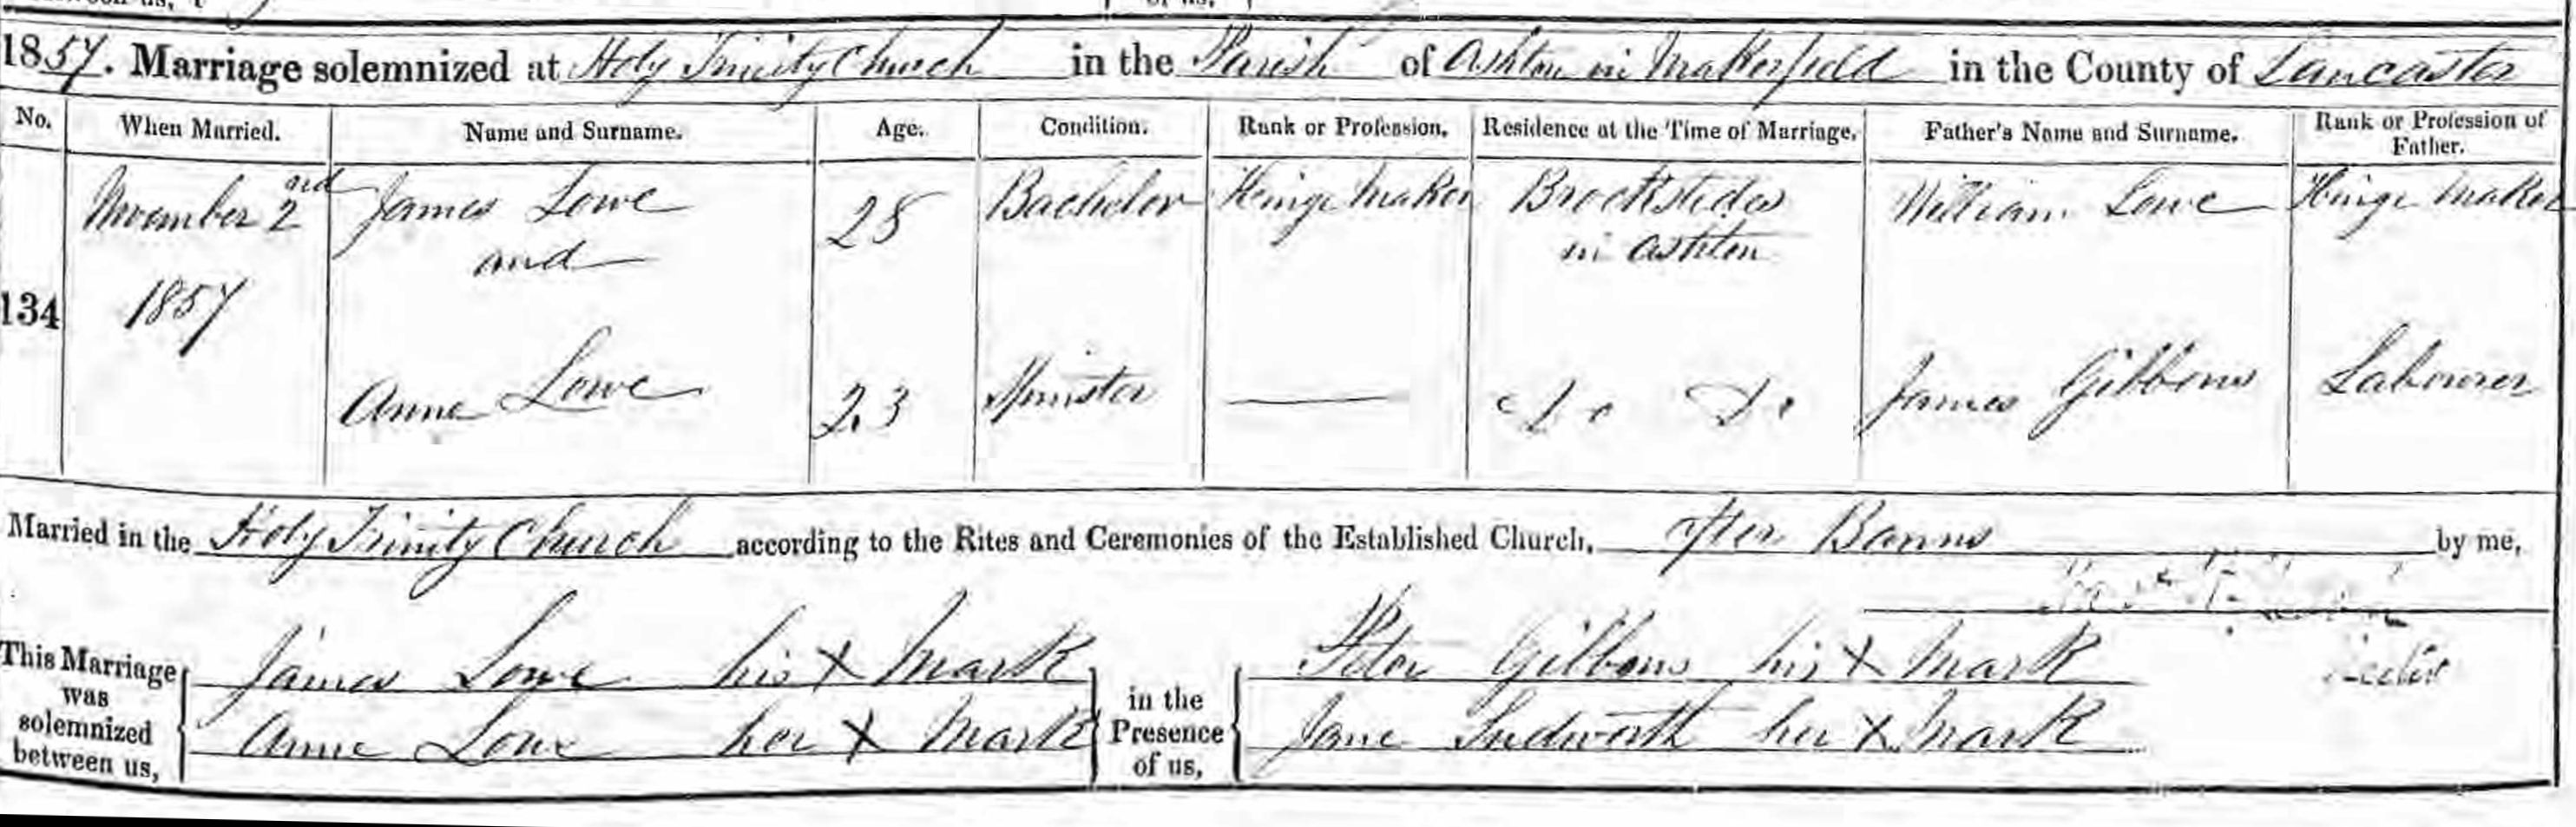 1857. Marriage solemnized at Holy Trinity Church in the Parish of Ashton in Makerfield in the County of Lancaster
No. When Married. Name and Surname. Age. Condition. Rank or Profession. Residence at the Time of Marriage. Father's Name and Surname. Rank or Profession of Father.
134 November 2nd 1857 James Lowe and 28 Bachelor Hinge Maker Brocksteds in Ashton William Lowe Hinge Maker
Anne Lowe 23 Spinster Do Do James Gibbons Labourer
Married in the Holy Trinity Church according to the Rites and Ceremonies of the Established Church, after Banns by me,
This Marriage was solemnized between us,
James Lowe his X Mark
Anne Lowe her X Mark
in the Presence of us,
Peter Gibbons his X Mark
Jane Ludworth her X Mark